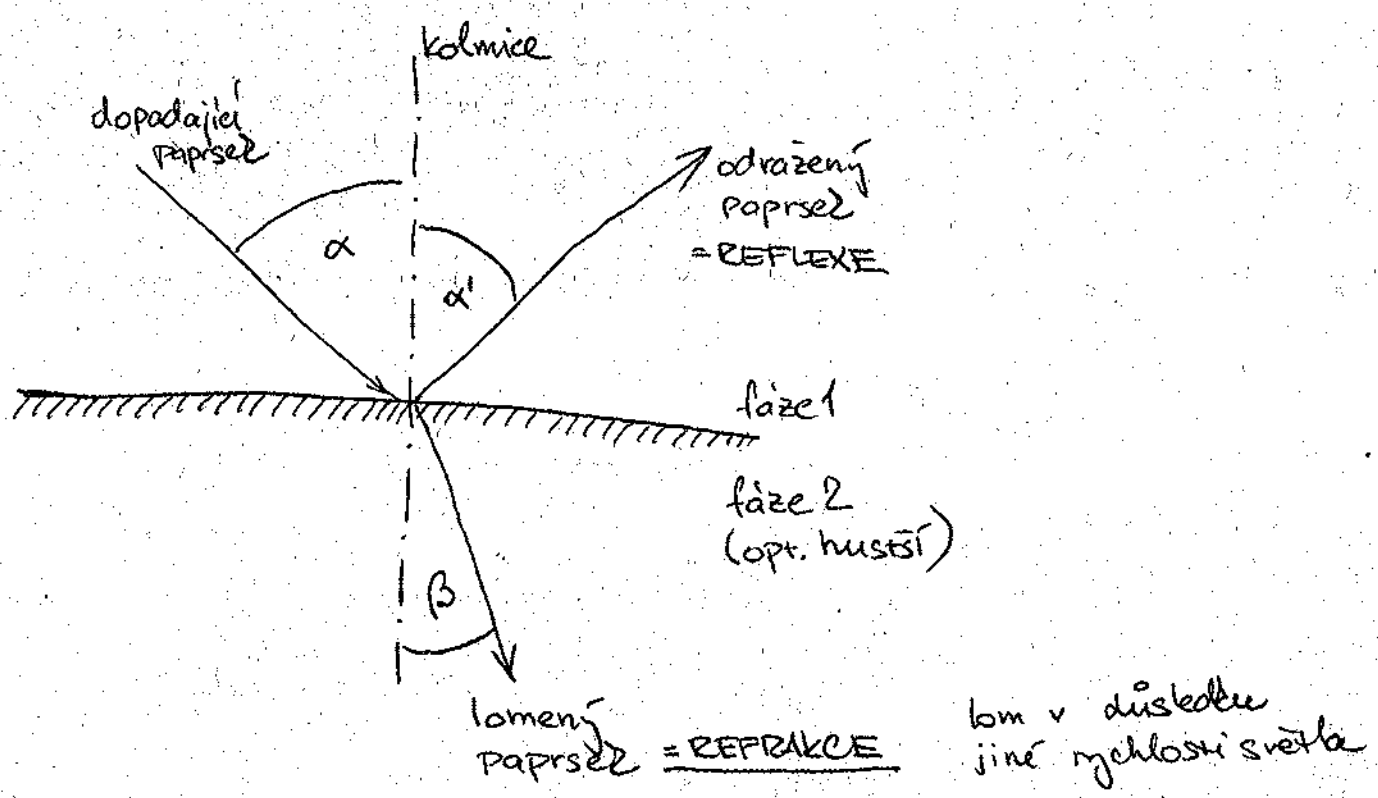 kolmice
dopadající
paprsek
α
α'
odražený
paprsek
=REFLEXE
fáze 1
fáze 2
(opt. hustší)
β
lomený
paprsek = REFRAKCE
lom v důsledku
jiné rychlosti světla